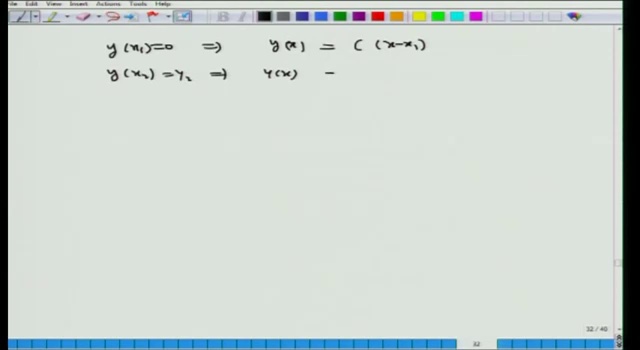 File Edit View Insert Actions Tools Help
y(x₁)=0 ⇒ y(x) = C (x-x₁)
y(x₂)=y₂ ⇒ y(x) -
32 / 40
32